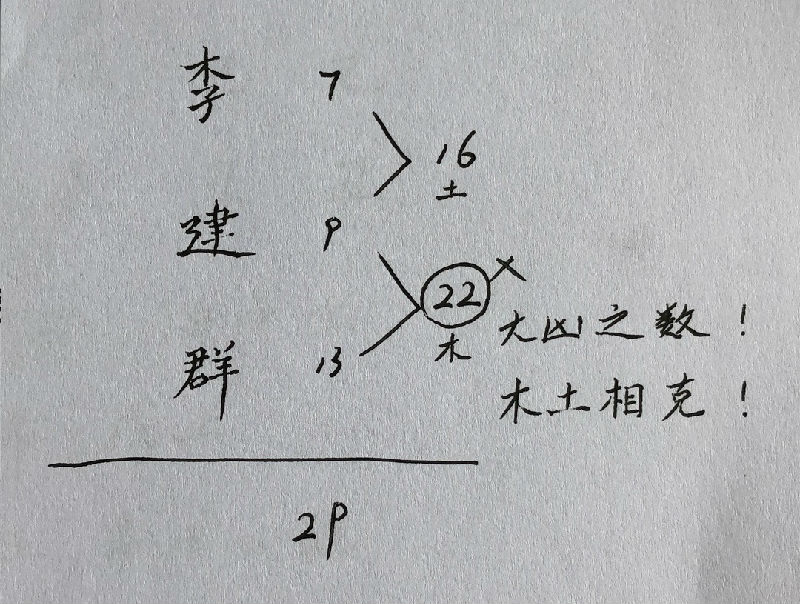 李 7
16
土
建 9
22 ×
木
大凶之数！
群 13
木土相克！
29